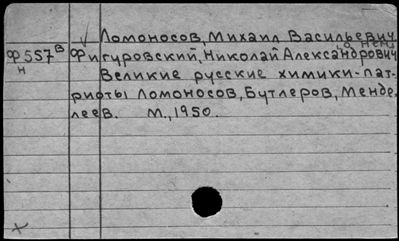 √ Ломоносов, Михаил Васильевич
о нем
Ф557в Фигуровский, Николай Александрович
н Великие русские химики-пат-
риоты Ломоносов, Бутлеров, Менде-
леев. М., 1950.
+